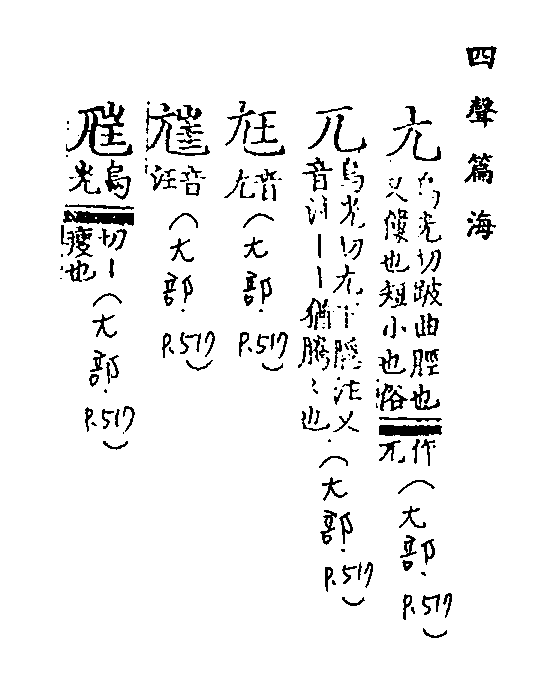 四聲篇海
尢
烏光切跛曲脛也
又僂也短小也俗
作兀
(尢部.P.517)
兀
烏光切尢下注又
音汪——猶腾〻也.
(尢部.P.517)
尪
音尢
(尢部.P.517)
音汪
(尢部P.517)
烏光
切—瘦也
(尢部.P.517)